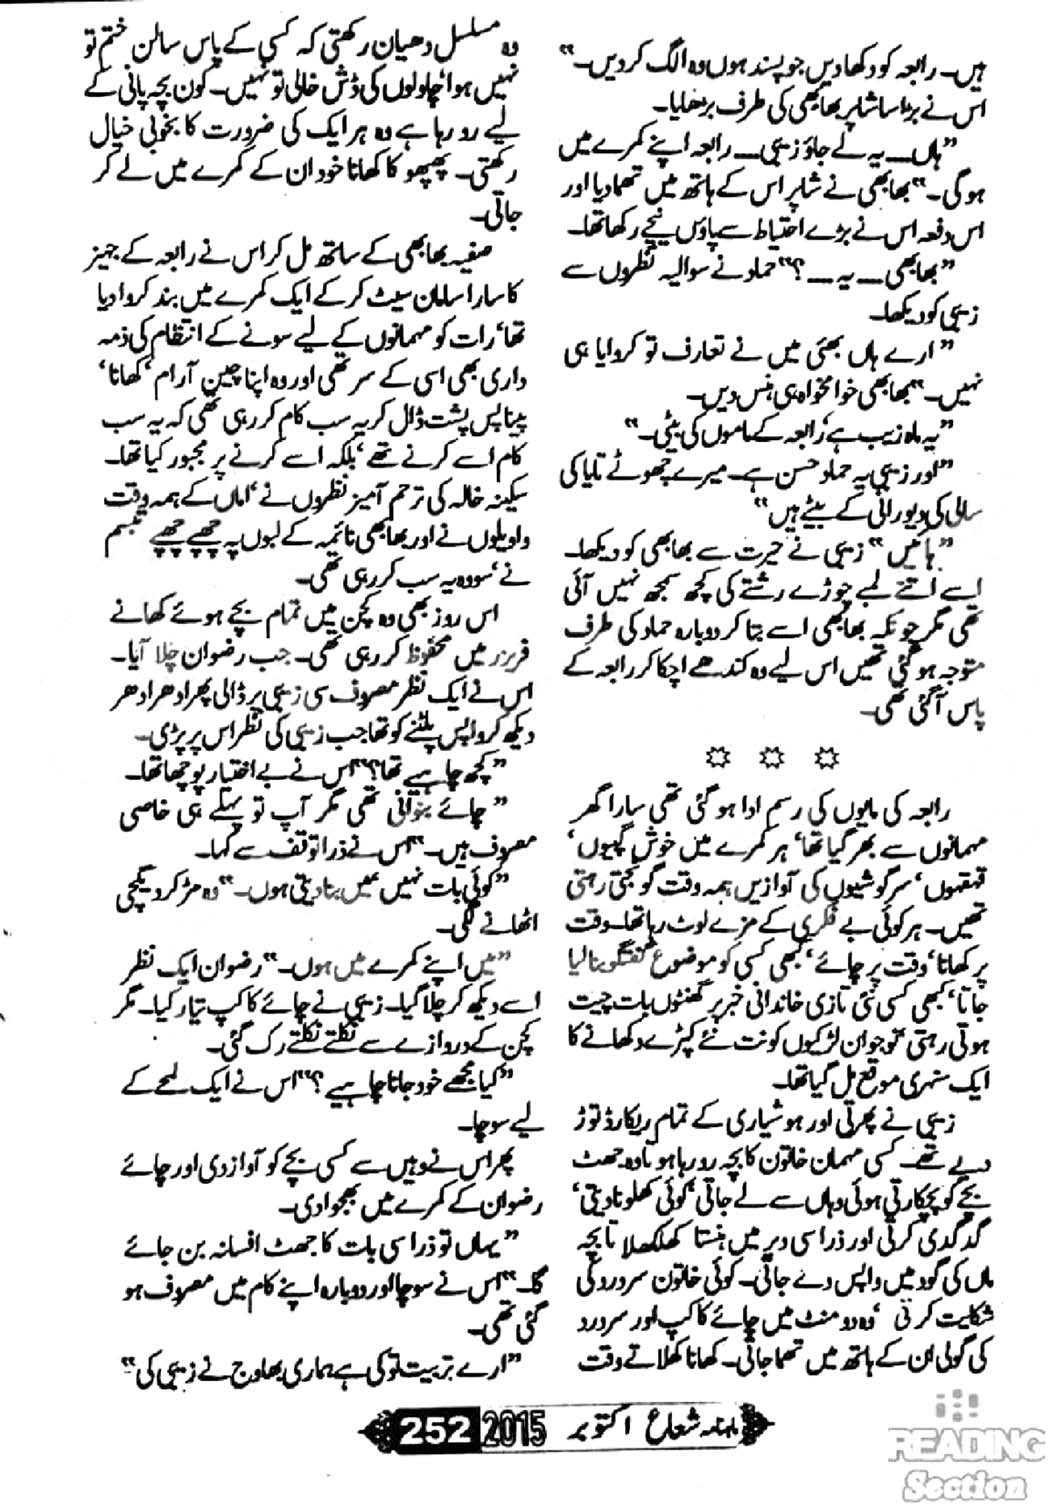 ہیں۔ رابعہ کو دکھا دیں جو پسند ہوں وہ الگ کر دیں۔“
اس نے بڑا سا شاپر بھابھی کی طرف بڑھایا۔
”ہاں ــ یہ لے جاؤ زیبی ــ رابعہ اپنے کمرے میں
ہوگی۔“ بھابھی نے شاپر اس کے ہاتھ میں تھما دیا اور
اس دفعہ اس نے بڑے احتیاط سے پاؤں نیچے رکھا تھا۔
”بھابھی ــ یہ ــ؟“ حماد نے سوالیہ نظروں سے
زیبی کو دیکھا۔
”ارے ہاں بھئی میں نے تعارف تو کروایا ہی
نہیں۔“ بھابھی خوامخواہ ہی ہنس دیں۔
”یہ ماہ زیب ہے‘ رابعہ کے ماموں کی بیٹی۔“
”اور زیبی یہ حماد حسن ہے۔ میرے چھوٹے تایا کی
سالی کی دیورانی کے بیٹے ہیں“
”ہائیں“ زیبی نے حیرت سے بھابھی کو دیکھا۔
اسے اتنے لمبے چوڑے رشتے کی کچھ سمجھ نہیں آئی
تھی مگر چونکہ بھابھی اسے بتا کر دوبارہ حماد کی طرف
متوجہ ہو گئی تھیں اس لیے وہ کندھے اچکا کر رابعہ کے
پاس آ گئی تھی۔
☼ ☼ ☼
رابعہ کی مایوں کی رسم ادا ہو گئی تھی سارا گھر
مہمانوں سے بھر گیا تھا‘ ہر کمرے میں خوش گپیوں‘
قہقہوں‘ سرگوشیوں کی آوازیں ہمہ وقت گونجتی رہتی
تھیں۔ ہر کوئی بے فکری کے مزے لوٹ رہا تھا۔ وقت
پر کھانا‘ وقت پر چائے‘ کبھی کسی کو موضوع گفتگو بنا لیا
جاتا‘ کبھی کسی نئی تازی خاندانی خبر پر گھنٹوں بات چیت
ہوتی رہتی‘ نوجوان لڑکیوں کو نت نئے کپڑے دکھانے کا
ایک سنہری موقع مل گیا تھا۔
زیبی نے پھرتی اور ہوشیاری کے تمام ریکارڈ توڑ
دیے تھے۔ کسی مہمان خاتون کا بچہ رو رہا ہوتا وہ جھٹ
بچے کو پچکارتی ہوئی وہاں سے لے جاتی‘ کوئی کھلونا دیتی‘
گدگدی کرتی اور ذرا سی دیر میں ہنستا کھلکھلاتا بچہ
ماں کی گود میں واپس دے جاتی۔ کوئی خاتون سر درد کی
شکایت کرتی‘ وہ دو منٹ میں چائے کا کپ اور سر درد
کی گولی ان کے ہاتھ میں تھما جاتی۔ کھانا کھلاتے وقت
وہ مسلسل دھیان رکھتی کہ کسی کے پاس سالن ختم تو
نہیں ہوا‘ چاولوں کی ڈش خالی تو نہیں۔ کون بچہ پانی کے
لیے رو رہا ہے وہ ہر ایک کی ضرورت کا بخوبی خیال
رکھتی۔ پھپھو کا کھانا خود ان کے کمرے میں لے کر
جاتی۔
صفیہ بھابھی کے ساتھ مل کر اس نے رابعہ کے جہیز
کا سارا سامان سیٹ کر کے ایک کمرے میں بند کروا دیا
تھا‘ رات کو مہمانوں کے لیے سونے کے انتظام کی ذمہ
داری بھی اسی کے سر تھی اور وہ اپنا چین آرام‘ کھانا‘
پینا پس پشت ڈال کر یہ سب کام کر رہی تھی کہ یہ سب
کام اسے کرنے تھے‘ بلکہ اسے کرنے پر مجبور کیا تھا۔
سکینہ خالہ کی ترحم آمیز نظروں نے‘ اماں کے ہمہ وقت
واویلوں نے اور بھابھی نائمہ کے لبوں پہ چھپے چھپے تبسم
نے‘ سو وہ یہ سب کر رہی تھی۔
اس روز بھی وہ کچن میں تمام بچے ہوئے کھانے
فریزر میں محفوظ کر رہی تھی۔ جب رضوان چلا آیا۔
اس نے ایک نظر مصروف سی زیبی پر ڈالی پھر ادھر ادھر
دیکھ کر واپس پلٹنے کو تھا جب زیبی کی نظر اس پر پڑی۔
”کچھ چاہیے تھا؟“ اس نے بے اختیار پوچھا تھا۔
”چائے بنوانی تھی مگر آپ تو پہلے ہی خاصی
مصروف ہیں۔“ اس نے ذرا توقف سے کہا۔
”کوئی بات نہیں میں بنا دیتی ہوں۔“ وہ مڑ کر دیگچی
اٹھانے لگی۔
”میں اپنے کمرے میں ہوں۔“ رضوان ایک نظر
اسے دیکھ کر چلا گیا۔ زیبی نے چائے کا کپ تیار کیا۔ مگر
کچن کے دروازے سے نکلتے نکلتے رک گئی۔
”کیا مجھے خود جانا چاہیے؟“ اس نے ایک لمحے کے
لیے سوچا۔
پھر اس نے وہیں سے کسی بچے کو آواز دی اور چائے
رضوان کے کمرے میں بھجوا دی۔
”یہاں تو ذرا سی بات کا جھٹ افسانہ بن جائے
گا۔“ اس نے سوچا اور دوبارہ اپنے کام میں مصروف ہو
گئی تھی۔
”ارے تربیت تو کی ہے ہماری بھاوج نے زیبی کی“
ماہنامہ شعاع اکتوبر 2015 252
READING
Section